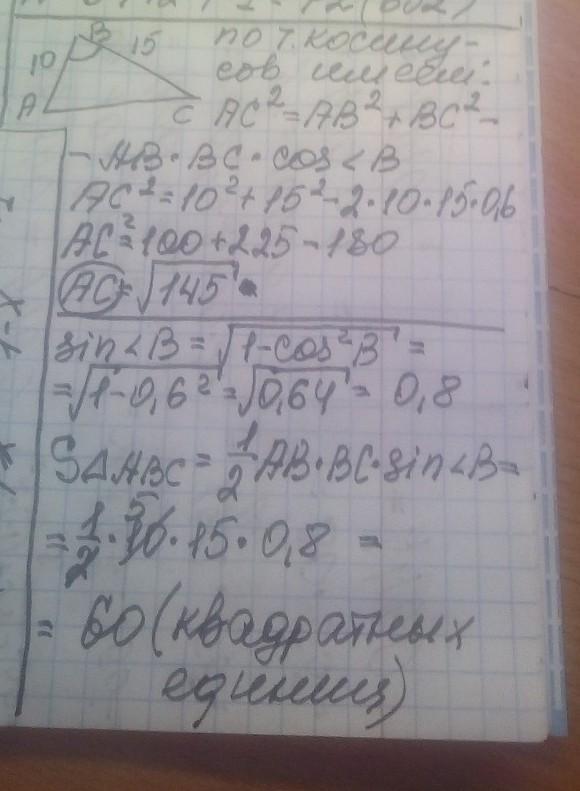 B
10
15
A
C
по т. косину-
сов имеем:
AC² = AB² + BC² -
- AB · BC · cos < B
AC² = 10² + 15² - 2 · 10 · 15 · 0,6
AC² = 100 + 225 - 180
AC = √145
sin < B = √1 - cos² B =
= √1 - 0,6² = √0,64 = 0,8
S△ABC = 1/2 AB · BC · sin < B =
5
= 1/2 · 10 · 15 · 0,8 =
= 60 (квадратных
единиц)